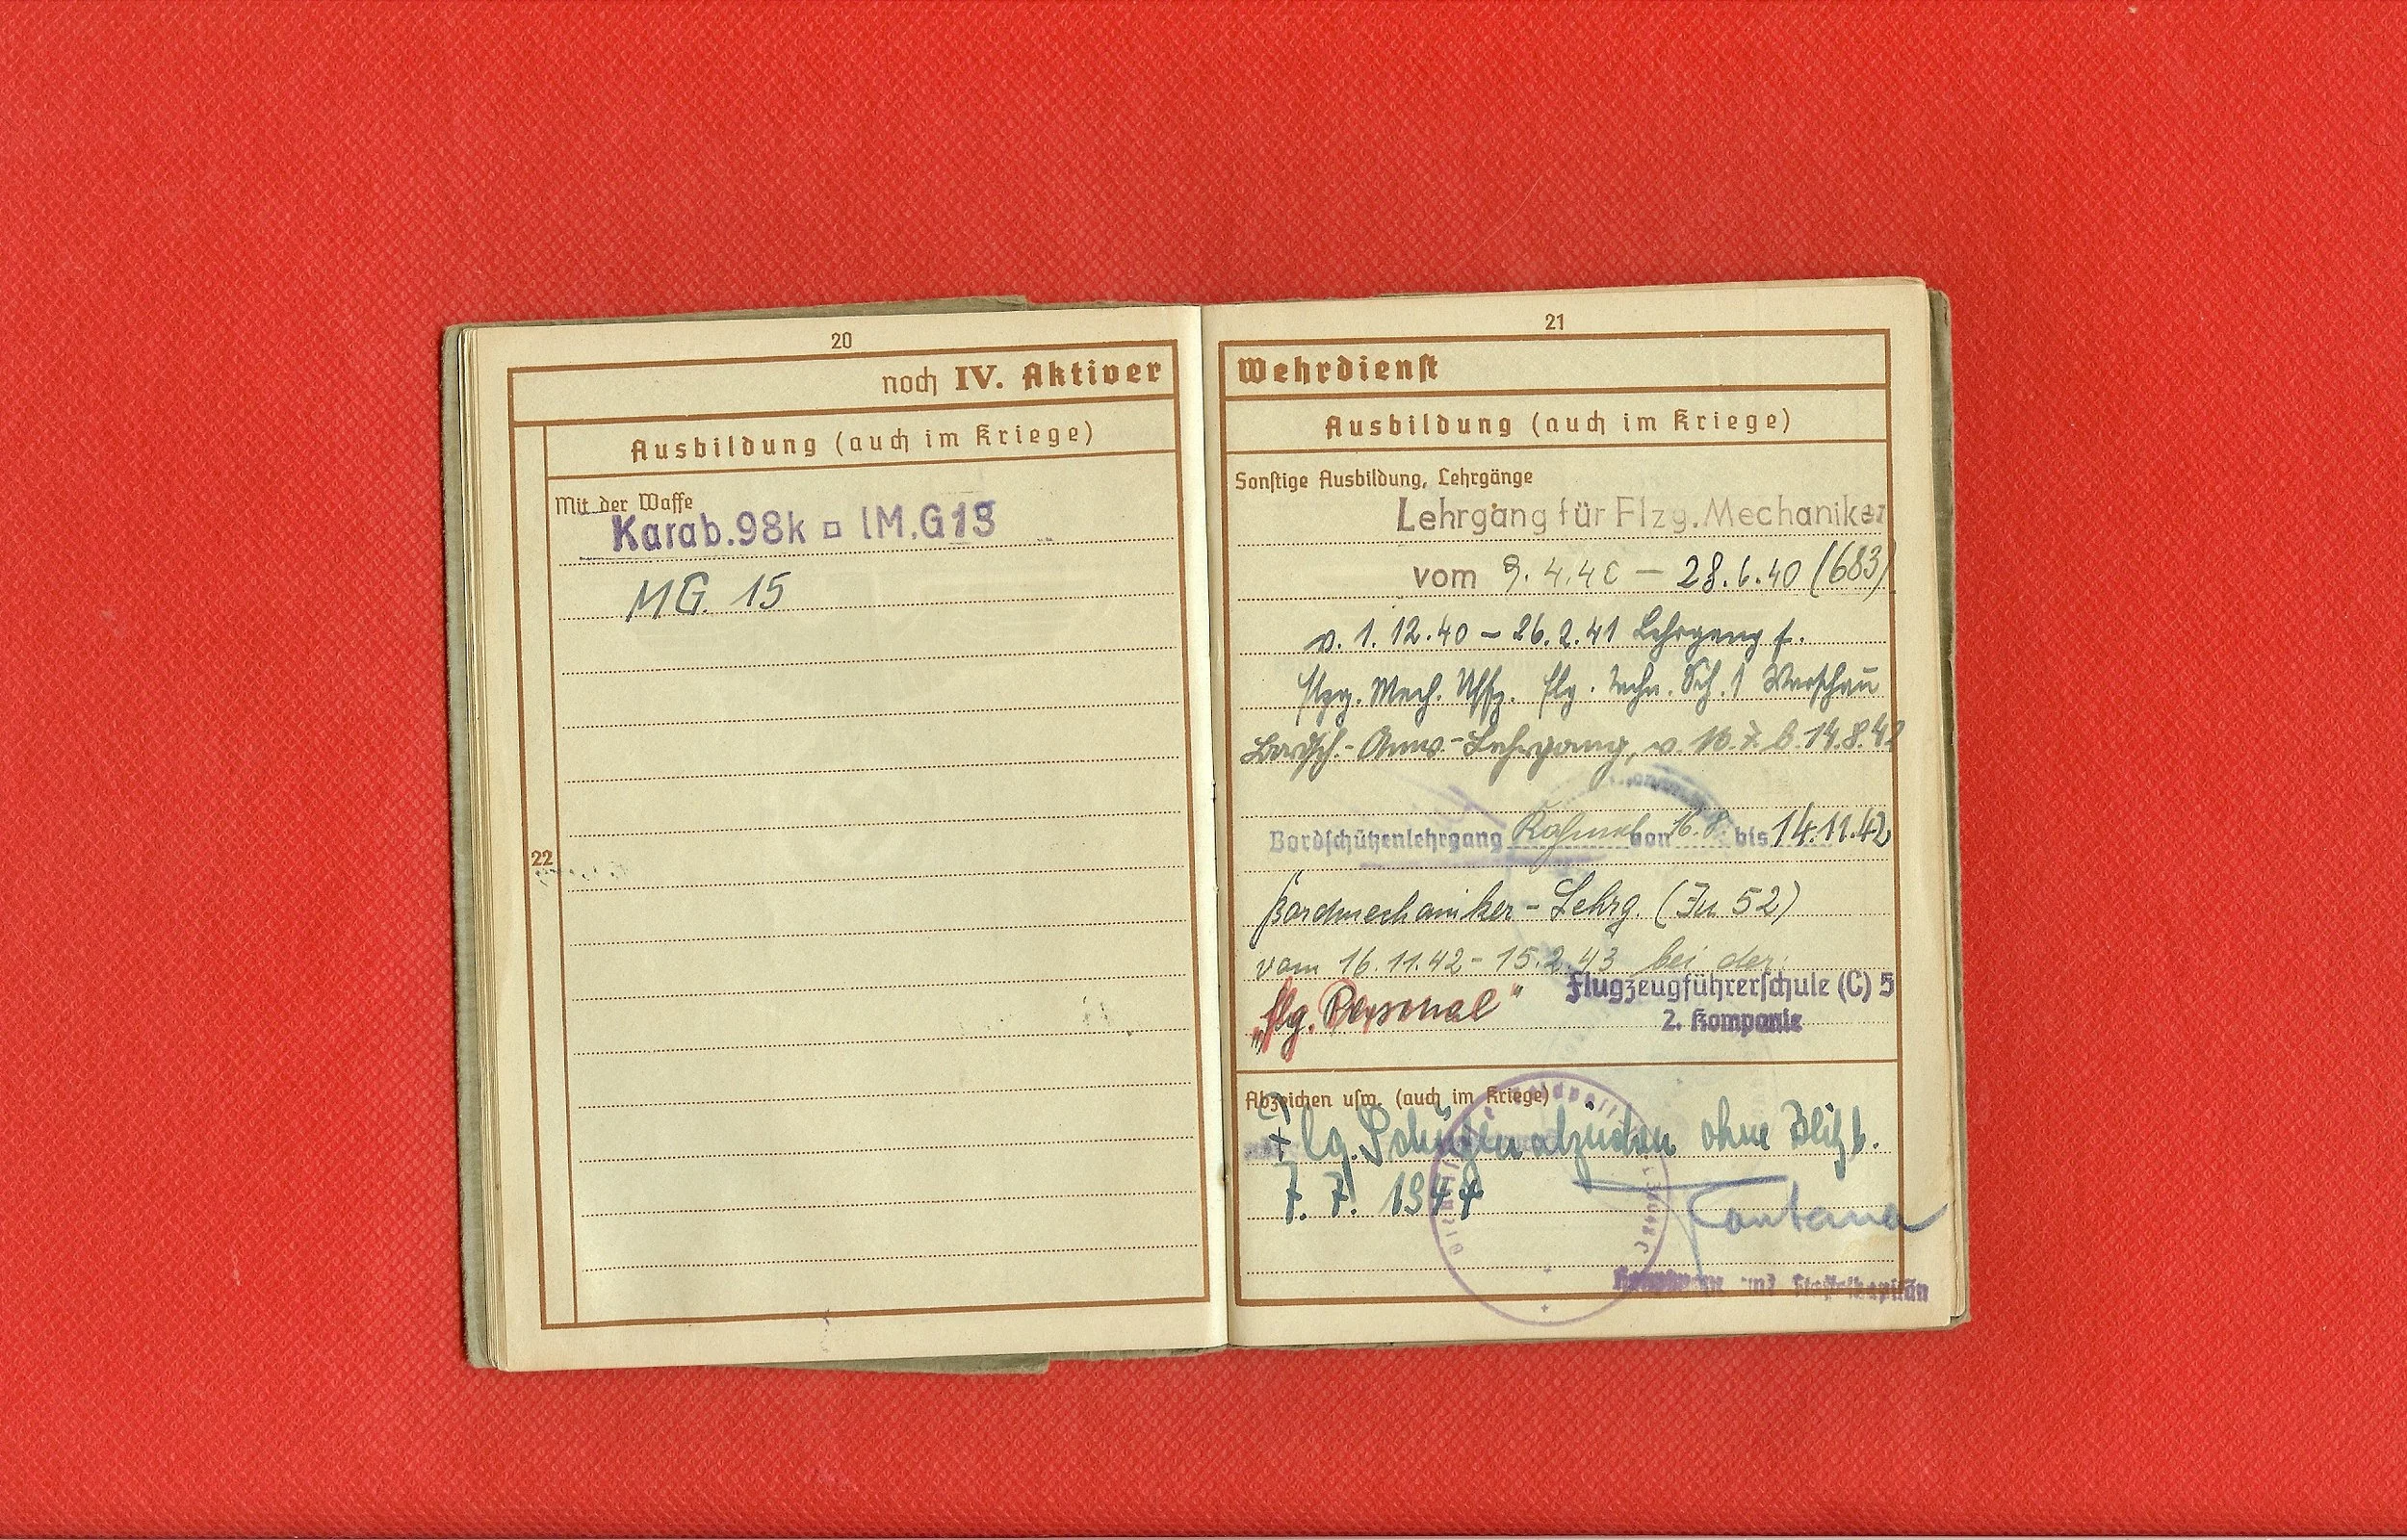 20
noch IV. Aktiver
Ausbildung (auch im Kriege)
Mit der Waffe
Karab.98k □ lM.G13
M.G. 15
22
21
Wehrdienst
Ausbildung (auch im Kriege)
Sonstige Ausbildung, Lehrgänge
Lehrgang für Flzg. Mechaniker
vom 9.4.40 – 28.6.40 (683)
v. 1.12.40 – 26.2.41 Lehrgang f.
Flzg. Mech. Uffz. Flg. Techn. Sch. 1 Warschau
Bordsch.-Anw.-Lehrgang, v. 7. b. 14.8.42
Bordschützenlehrgang Rahmel von 16.8. bis 14.11.42
Bordmechaniker-Lehrg. (Ju 52)
vom 16.11.42 - 15.2.43 bei der
Flugzeugführerschule (C) 5
„flg. Personal"
2. Kompanie
Abzeichen usw. (auch im Kriege)
Flg. Schützenabzeichen ohne Blitzb.
7. 7. 1944
Fontana
Hauptmann und Staffelkapitän